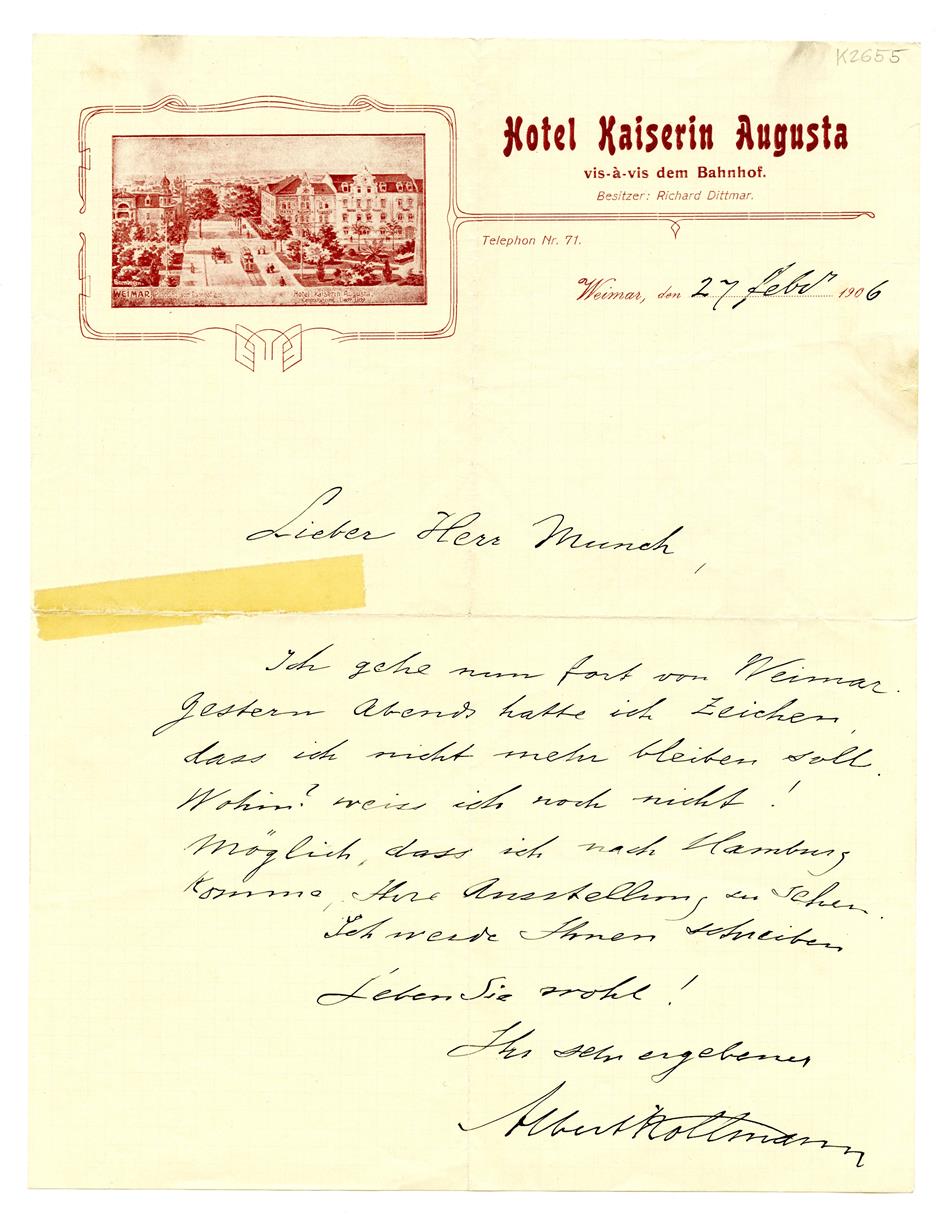 K2655
Hotel Kaiserin Augusta
vis-à-vis dem Bahnhof.
Besitzer: Richard Dittmar.
Telephon Nr. 71.
WEIMAR
Hotel Kaiserin Augusta.
Weimar, den 27 Febr 1906
Lieber Herr Munch,
Ich gehe nun fort von Weimar.
Gestern Abends hatte ich Zeichen,
dass ich nicht mehr bleiben soll.
Wohin? weiss ich noch nicht!
Möglich, dass ich nach Hamburg
komme, Ihre Ausstellung zu sehen.
Ich werde Ihnen schreiben
Leben Sie wohl!
Ihr sehr ergebener
Albert Kollmann